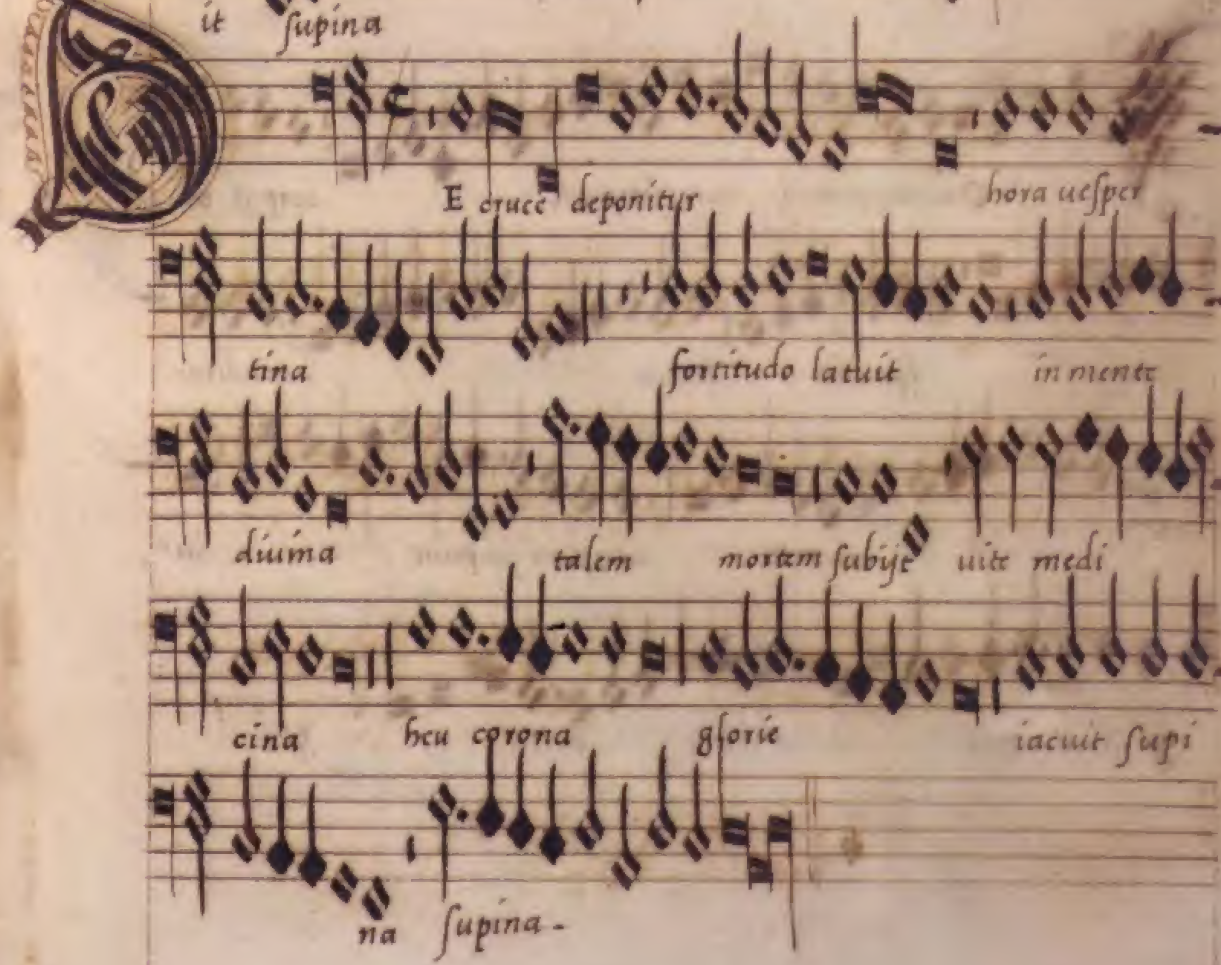 it supina
DE cruce deponitur hora uesper
tina fortitudo latuit in mente
diuina talem mortem subijt uite medi
cina heu corona glorie iacuit supi
na supina -